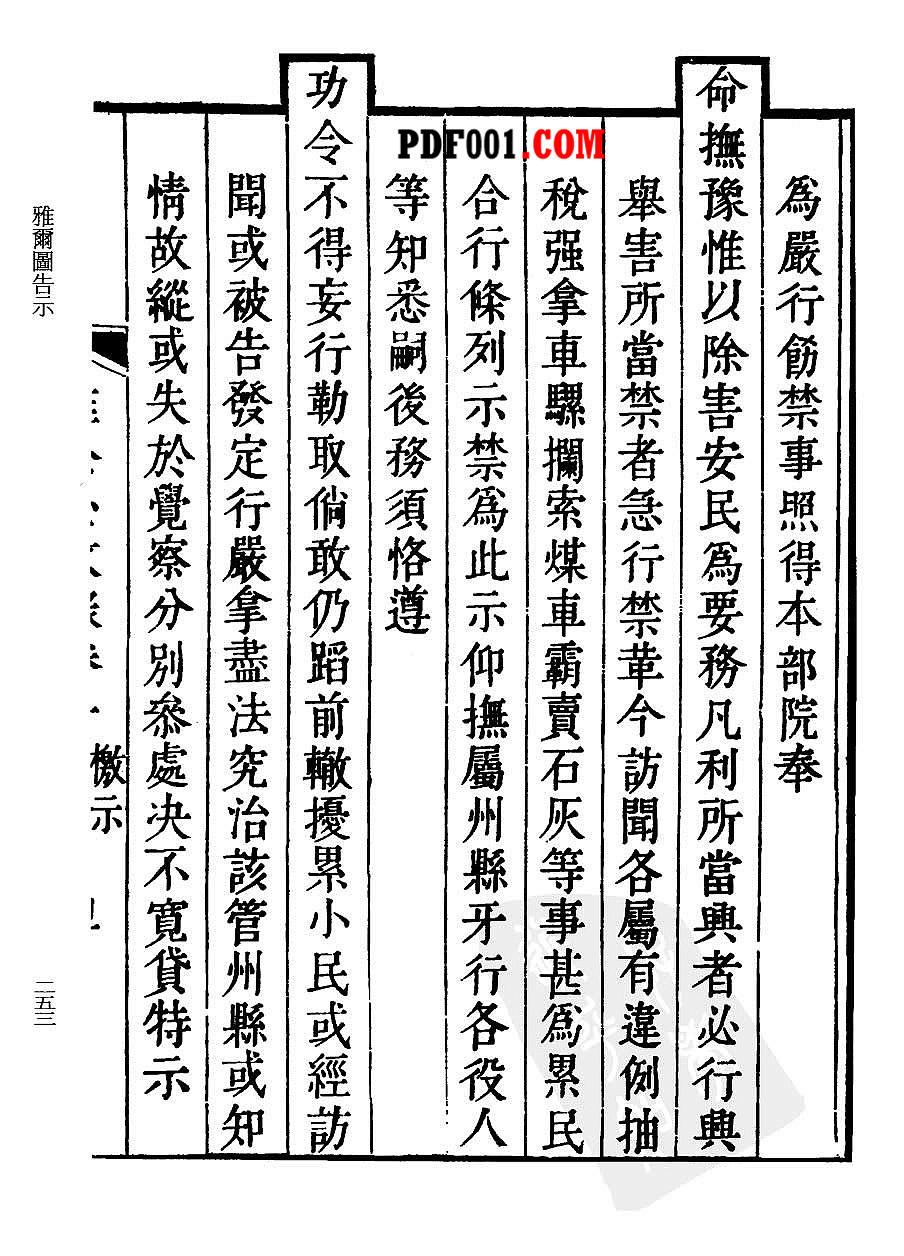 為嚴行飭禁事照得本部院奉
命撫豫惟以除害安民為要務凡利所當興者必行興
舉害所當禁者急行禁革今訪聞各屬有違例抽
稅强拿車騾攔索煤車霸賣石灰等事甚為累民
合行條列示禁為此示仰撫屬州縣牙行各役人
等知悉嗣後務須恪遵
功令不得妄行勒取倘敢仍蹈前轍擾累小民或經訪
聞或被告發定行嚴拿盡法究治該管州縣或知
情故縱或失於覺察分別叅處决不寬貸特示
檄示
雅爾圖告示
二五三
PDF001.COM